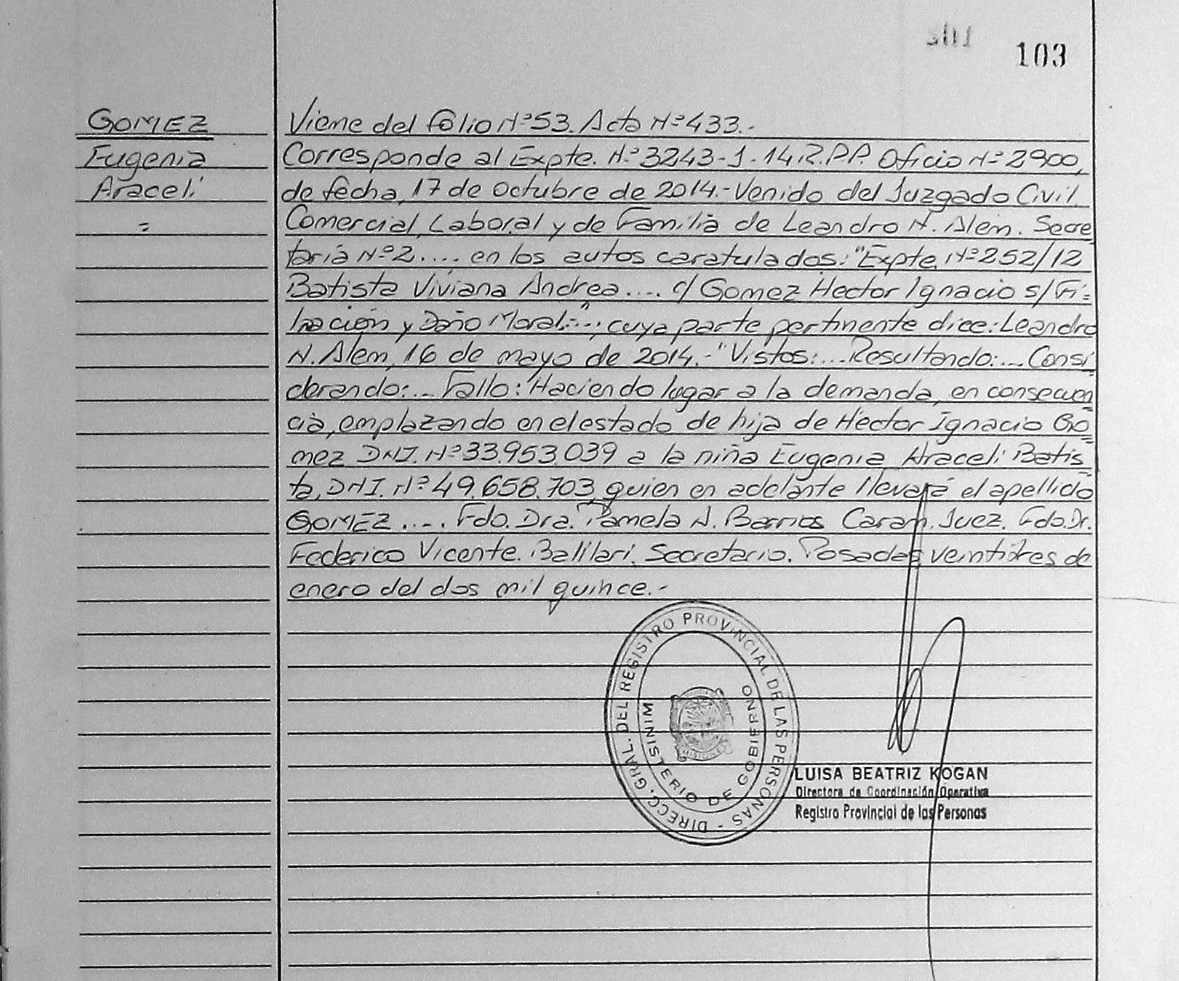 103
GOMEZ
Eugenia
Araceli
=
Viene del folio Nº53. Acta Nº433.-
Corresponde al Expte. Nº3243-J-14.R.P.P. Oficio Nº2900,
de fecha, 17 de Octubre de 2014.- Venido del Juzgado Civil
Comercial, Laboral y de Familia de Leandro N. Alem. Secre
taria Nº2.... en los autos caratulados: "Expte. Nº252/12
Batista Viviana Andrea.... c/ Gomez Hector Ignacio s/ Fi-
liación y Daño Moral...", cuya parte pertinente dice: Leandro
N. Alem, 16 de mayo de 2014.- "Vistos:... Resultando:... Consi
derando:... Fallo: Haciendo lugar a la demanda, en consecuen
cia, emplazando en el estado de hija de Héctor Ignacio Go
mez DNI. Nº33.953.039 a la niña Eugenia Araceli Batis
ta, DNI. Nº49.658.703, quien en adelante llevará el apellido
GOMEZ.... Fdo. Dra. Pamela N. Barrios Caram. Juez. Fdo. Dr.
Federico Vicente. Balilari. Secretario. Posadas veintitres de
enero del dos mil quince.-
DIRECC. GRAL. DEL REGISTRO PROVINCIAL DE LAS PERSONAS -
MINISTERIO DE GOBIERNO
LUISA BEATRIZ KOGAN
Directora de Coordinación Operativa
Registro Provincial de las Personas